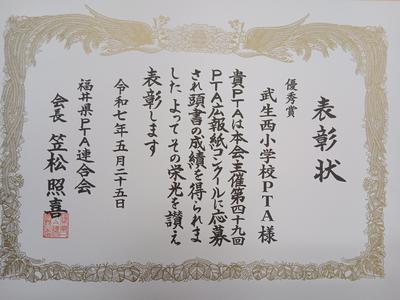 表彰状
優秀賞
武生西小学校PTA様
貴PTAは本会主催第四十九回
PTA広報紙コンクールに応募
され頭書の成績を得られま
した よって その栄光を讃え
表彰します
令和七年五月二十五日
福井県PTA連合会
会長 笠松照喜